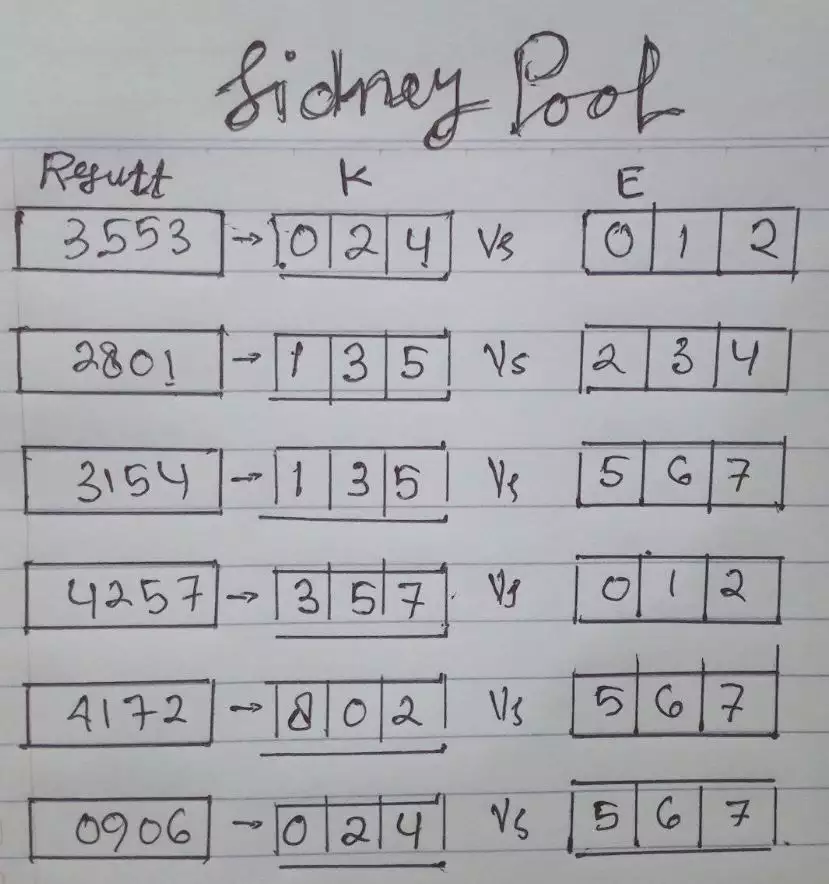 Sidney Pool
Result K E
3553 → 0 2 4 Vs 0 1 2
2801 → 1 3 5 Vs 2 3 4
3154 → 1 3 5 Vs 5 6 7
4257 → 3 5 7 Vs 0 1 2
4172 → 8 0 2 Vs 5 6 7
0906 → 0 2 4 Vs 5 6 7